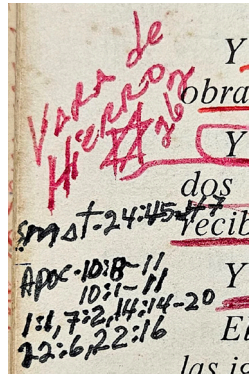 VARA de
HIERRO
Y
obra
Y
dos
Smat-24:45-47
recib
APOC-10:8-11
10:1-11
Y
1:1, 7:2, 14:14-20
22:6, 22:16
El
las ig